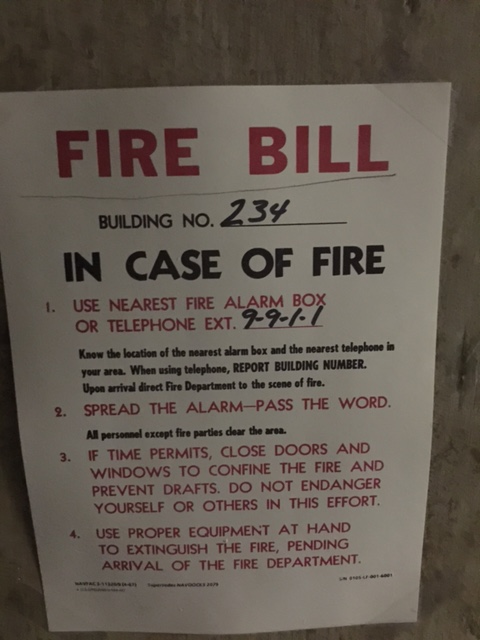 FIRE BILL
BUILDING NO. 234
IN CASE OF FIRE
1. USE NEAREST FIRE ALARM BOX
OR TELEPHONE EXT. 9-9-1-1
Know the location of the nearest alarm box and the nearest telephone in
your area. When using telephone, REPORT BUILDING NUMBER.
Upon arrival direct Fire Department to the scene of fire.
2. SPREAD THE ALARM—PASS THE WORD.
All personnel except fire parties clear the area.
3. IF TIME PERMITS, CLOSE DOORS AND
WINDOWS TO CONFINE THE FIRE AND
PREVENT DRAFTS. DO NOT ENDANGER
YOURSELF OR OTHERS IN THIS EFFORT.
4. USE PROPER EQUIPMENT AT HAND
TO EXTINGUISH THE FIRE, PENDING
ARRIVAL OF THE FIRE DEPARTMENT.